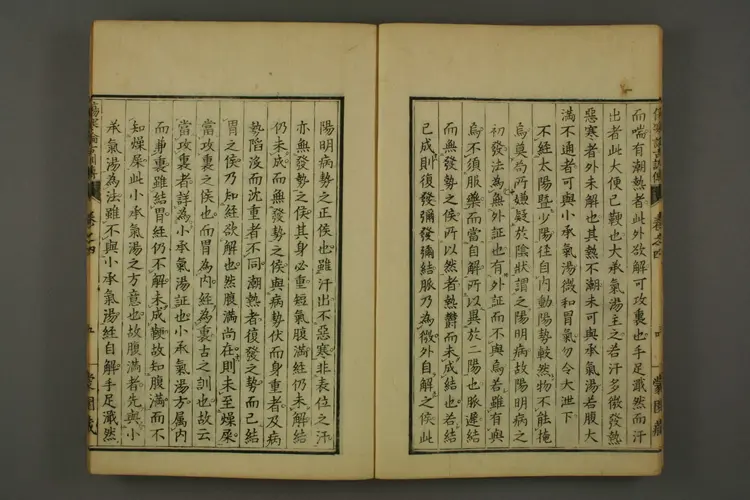 而喘有潮熱者此外欲解可攻裏也手足濈然而汗
出者此大便已鞕也大承氣湯主之若汗多微發熱
惡寒者外未解也其熱不潮未可與承氣湯若腹大
滿不通者可與小承氣湯微和胃氣勿令大泄下
不經太陽暨少陽徑自內動陽勢較然物不能掩
焉莫為所嫌疑於陰狀謂之陽明病故陽明病之
初發法為無外証也有外証而不與焉若雖有與
焉不須服藥而當自解所以異於二陽也脈遲結
而無發勢之候所以然者熱鬱而未成結也若結
已成則復發彌發彌結脈乃為微外自解之候此
卷之四
陽明病勢之正候也雖汗出不惡寒非表位之汗
亦無發勢之候其身必重短氣腹滿經仍未解結
仍未成而無發勢之候與病勢伏而身重者及病
勢陷沒而沈重者不同潮熱者復發之勢而已結
胃之候乃知經欲解也然腹滿尚在則未至燥屎
當攻裏之候也而胃為內經為裏古之訓也故云
當攻裏者詳為小承氣湯証也小承氣湯方屬內
而兼裏雖結胃經仍不解未成鞕故知腹滿而不
知燥屎此小承氣湯之方意也故腹滿者先與小
承氣湯為法雖不與小承氣湯經自解手足濈然
卷之四
五